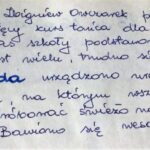 Zbigniew Owczarek p
kurs tańca dla
as szkoły podstawo
st wielu, trudno si
da urządzono w
na którym rosz
świeżo n
Bawiono się wes